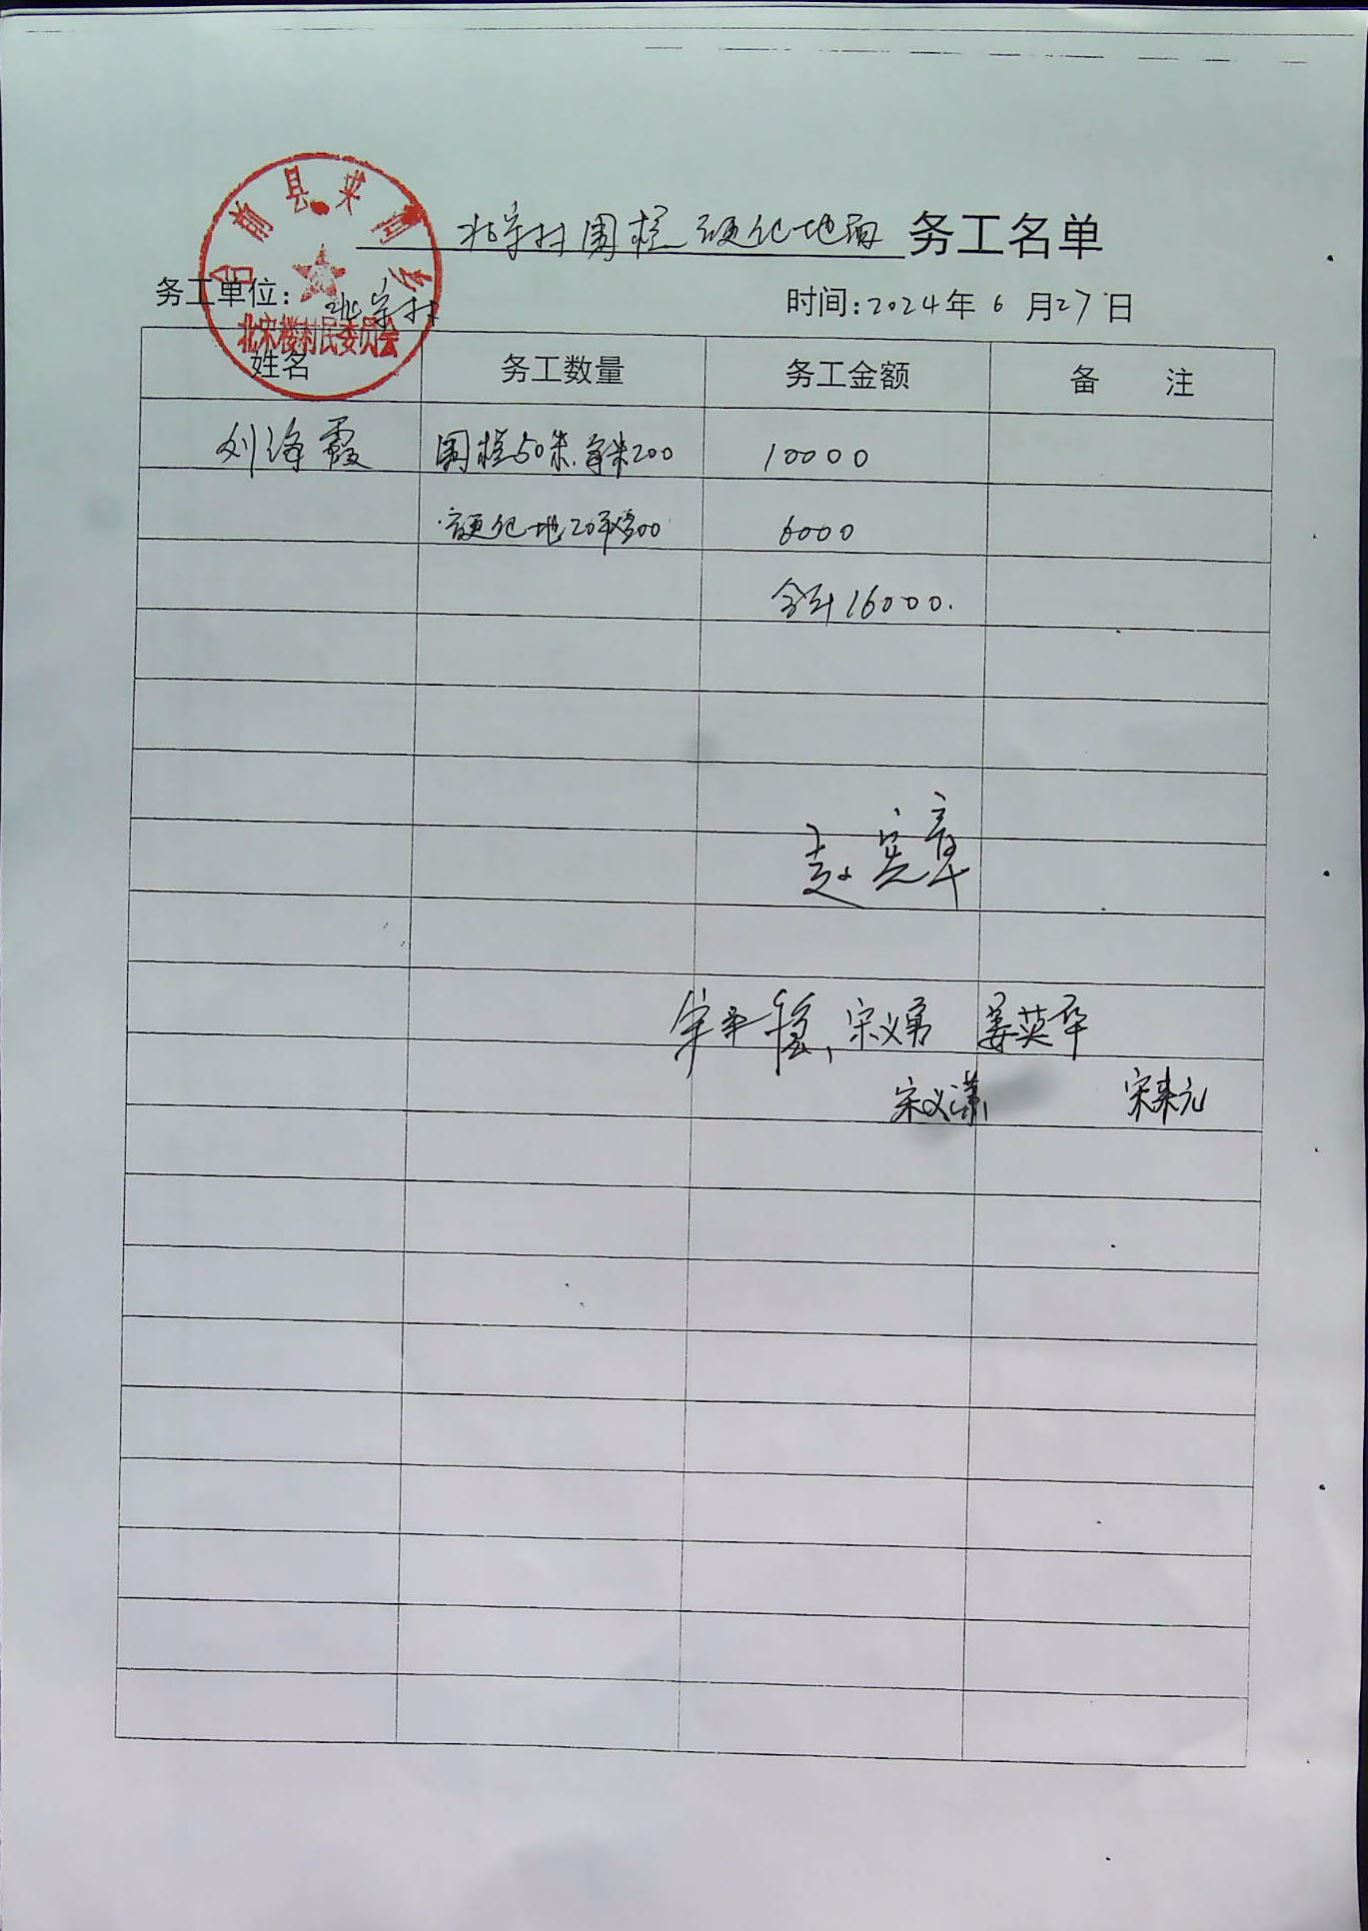 台前县夹河乡
北宋楼村民委员会
北宋村围栏硬化地面 务工名单
务工单位: 北宋村 时间:2024年 6 月27日
姓名 务工数量 务工金额 备 注
刘海霞 围栏50米.每米200 10000
硬化地20平300 6000
合计16000.
赵宪章
宋义勇 姜英华
宋义潇 宋来元